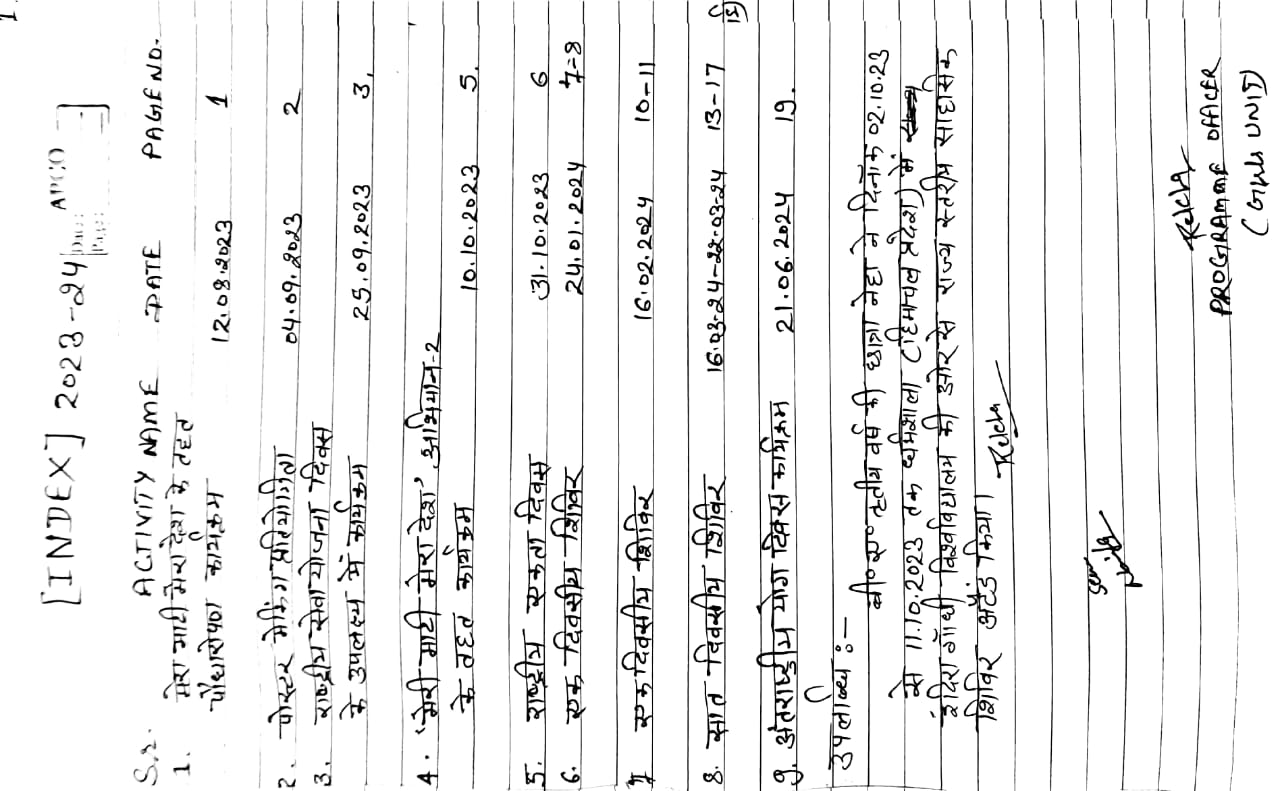 [INDEX] 2023-24
S.r. ACTIVITY NAME DATE PAGE NO.
1. मेरा माटी मेरा देश के तहत
पौधारोपण कार्यक्रम 12.08.2023 1
2. पोस्टर मेकिंग प्रतियोगिता 04.09.2023 2
3. राष्ट्रीय सेवा योजना दिवस
के उपलक्ष्य में कार्यक्रम 25.09.2023 3.
4. 'मेरी माटी मेरा देश' अभियान-2
के तहत कार्यक्रम 10.10.2023 5.
5. राष्ट्रीय एकता दिवस 31.10.2023 6
6. एक दिवसीय शिविर 24.01.2024 7-8
7 एक दिवसीय शिविर 16.02.2024 10-11
8. सात दिवसीय शिविर 16.03.24-22.03.24 13-17
9. अंतराष्ट्रीय योग दिवस कार्यक्रम 21.06.2024 19.
उपलब्धि :-
बी०ए० तृतीय वर्ष की छात्रा नेहा ने दिनाँक 02.10.23
से 11.10.2023 तक धर्मशाला (हिमाचल प्रदेश) में
इंदिरा गाँधी विश्वविद्यालय की ओर से राज्य स्तरीय साहसिक
शिविर अटेंड किया।
PROGRAMME OFFICER
(Girls UNIT)